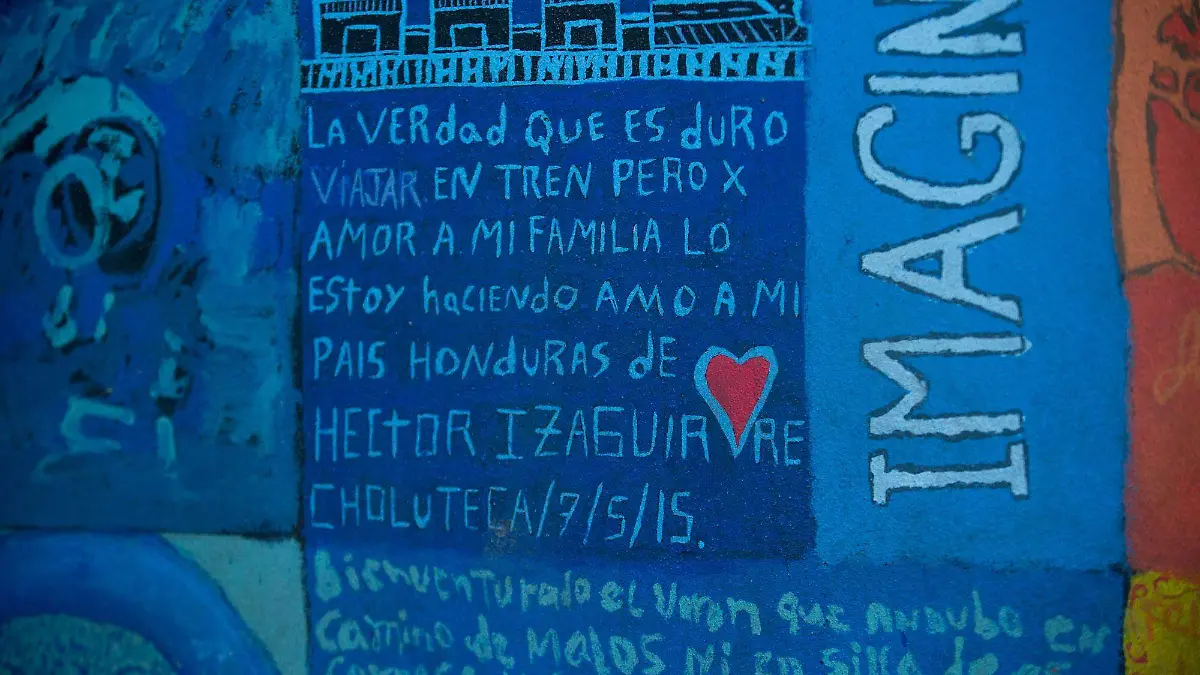 LA VERdad QUE ES dURO
VIAJAR EN TREN PERO X
AMOR A MI FAMILIA LO
ESTOY haciENdo AMO A MI
PAIS HONdURAS dE
HECTOR IZAGUIRRE
CHOLUTECA/7/5/15.
BiENVENTURado el Varon que anduvo en
Camino de MALOS Ni en Silla de
IMAGIN